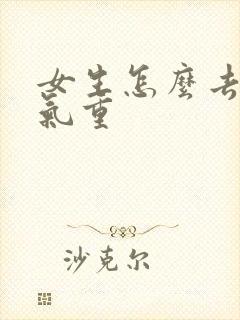 女生怎麼去
氣重
沙克尔